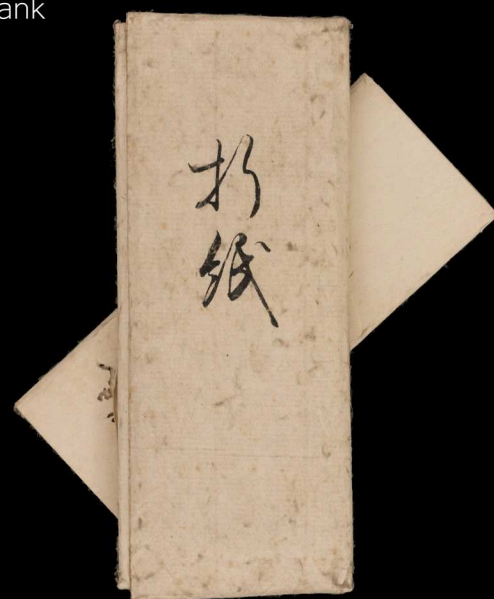 ank
折
紙